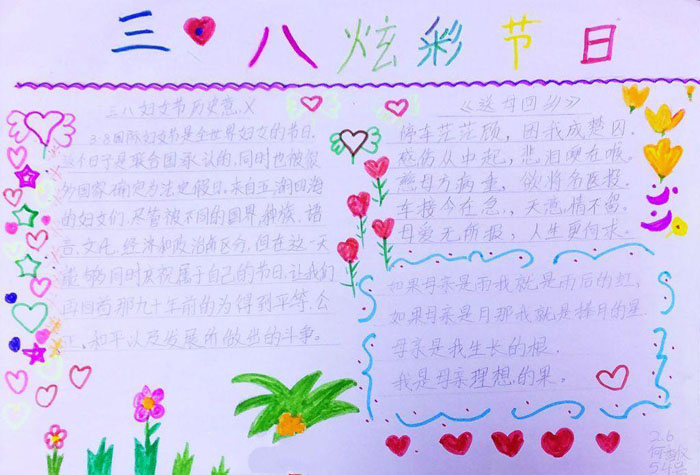 三八炫彩节日
三八妇女节历史意义
3·8国际妇女节是全世界妇女的节日。
这个日子是联合国承认的,同时也被很
多国家确定为法定假日。来自五湖四海
的妇女们,尽管被不同的国界、种族、语
言、文化、经济和政治所区分,但在这一天
能够同时庆祝属于自己的节日,让我们
再回首那九十年前的为得到平等、公
正、和平以及发展所做出的斗争。
《送母回乡》
停车茫茫顾,困我成楚囚。
感伤从中起,悲泪哽在喉。
慈母方病重,欲将名医投。
车接今在急,天竟情不留。
母爱无所报,人生更何求。
如果母亲是雨我就是雨后的虹,
如果母亲是月那我就是捧月的星
母亲是我生长的根,
我是母亲理想的果。
2.6